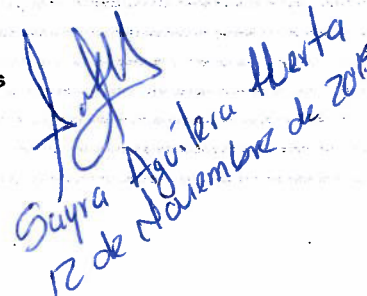 s
Sayra Aguilera Huerta
12 de Noviembre de